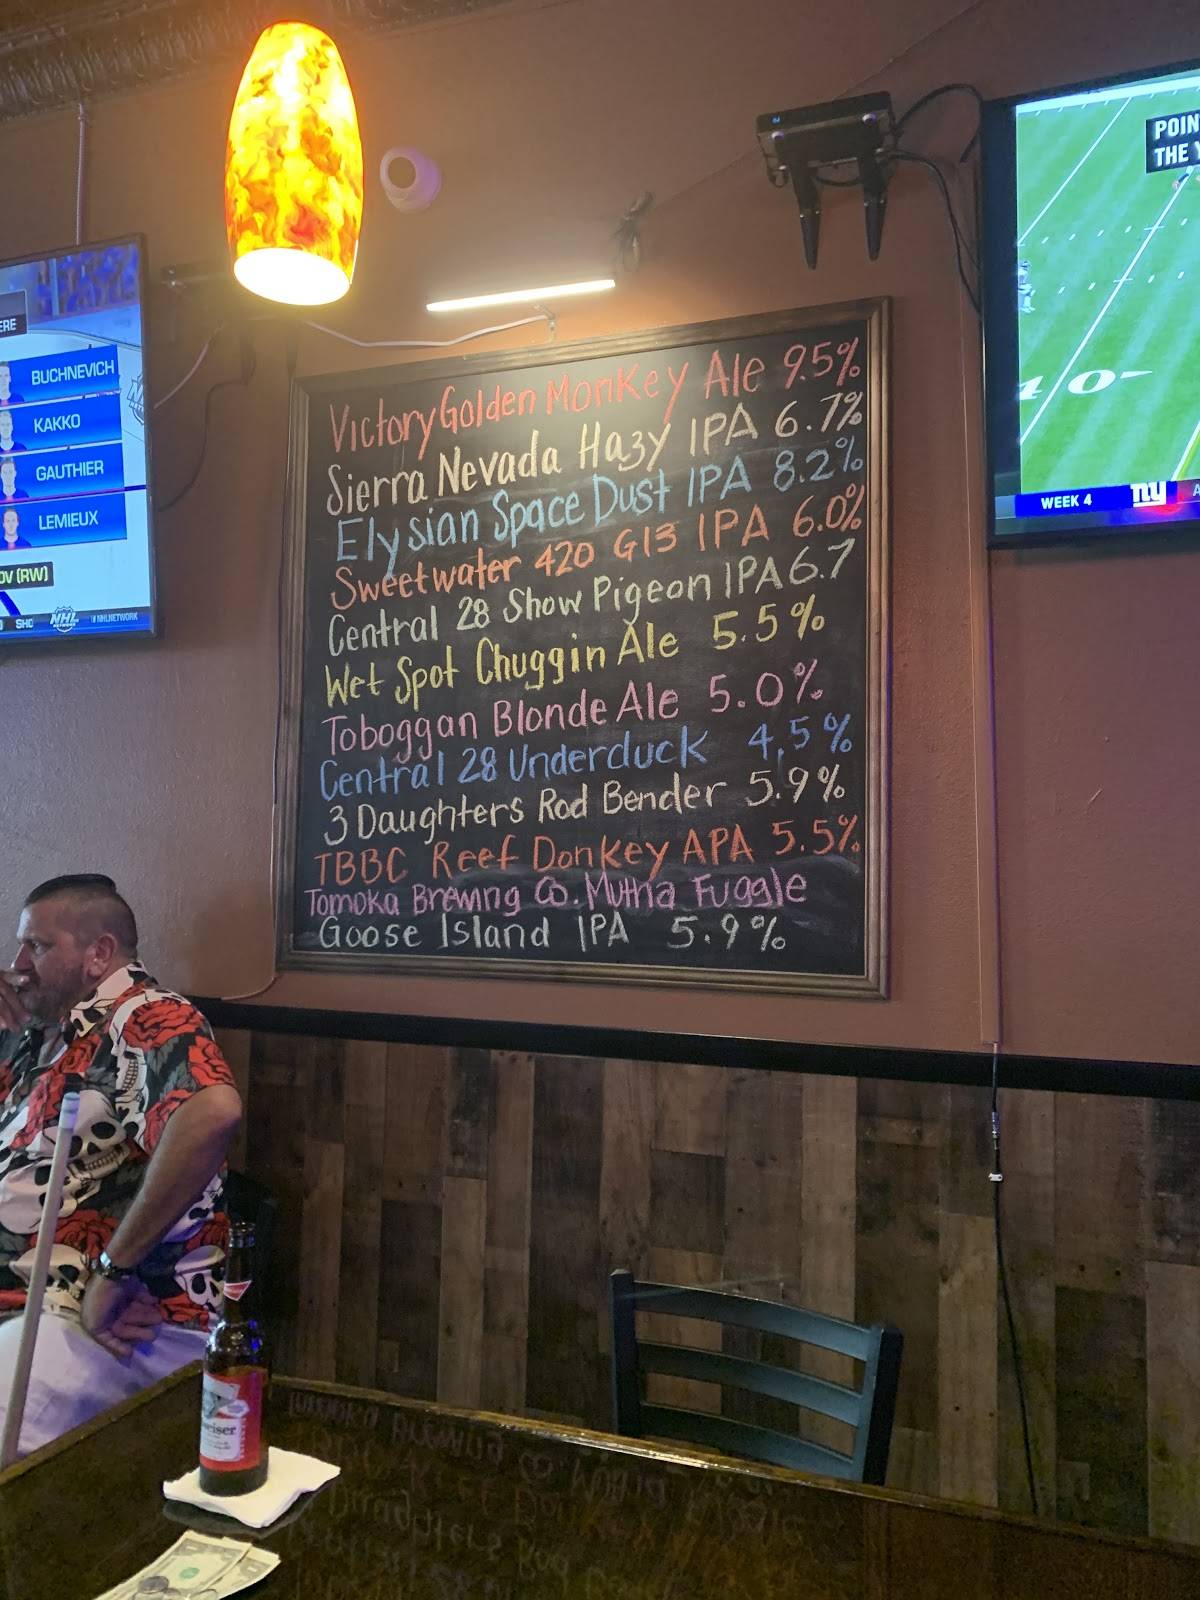 POIN
THE
ERE
BUCHNEVICH
KAKKO
GAUTHIER
LEMIEUX
OV (RW)
SHO
NHL
NETWORK
NHLNETWORK
WEEK 4
ny
A
Victory Golden Monkey Ale 9.5%
Sierra Nevada Hazy IPA 6.7%
Elysian Space Dust IPA 8.2%
Sweetwater 420 G13 IPA 6.0%
Central 28 Show Pigeon IPA 6.7
Wet Spot Chuggin Ale 5.5%
Toboggan Blonde Ale 5.0%
Central 28 Underduck 4.5%
3 Daughters Rod Bender 5.9%
TBBC Reef Donkey APA 5.5%
Tomoka Brewing Co. Mutha Fuggle
Goose Island IPA 5.9%
eiser